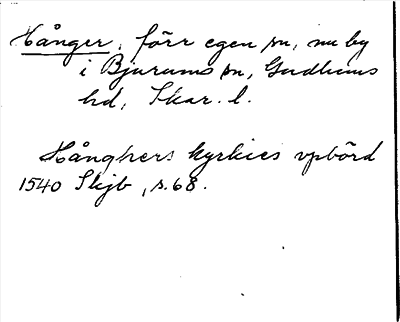 Hånger, förr egen sn, nu by
i Bjurums sn, Gudhems
hd, Skar. l.
Hånghers kyrkies vpbörd
1540 Skjb, s. 68.